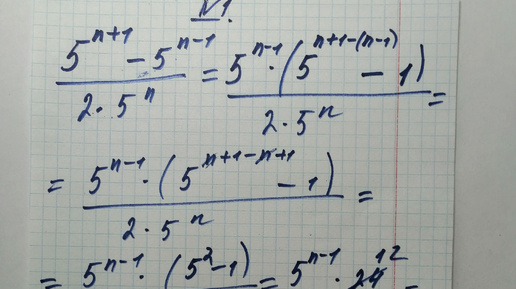 №1.
(5^(n+1) - 5^(n-1)) / (2 · 5^n) = (5^(n-1) · (5^(n+1-(n-1)) - 1)) / (2 · 5^n) =
= (5^(n-1) · (5^(n+1-n+1) - 1)) / (2 · 5^n) =
= 5^(n-1) · (5^2 - 1) = 5^(n-1) · 24 12 =